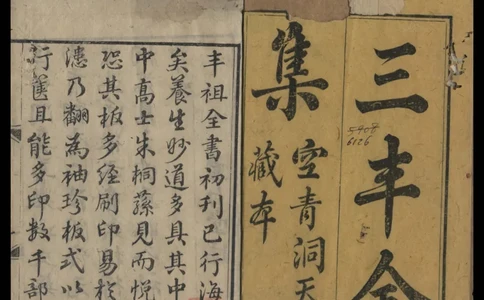 三丰全
集
空青洞天
藏本
6126
丰祖全書初刊已行海
矣養生妙道多具其中
中高士朱桐蓀見而悅
恐其板多經刷印易於
漶乃翻為袖珍板式以
行篋且能多印数千部